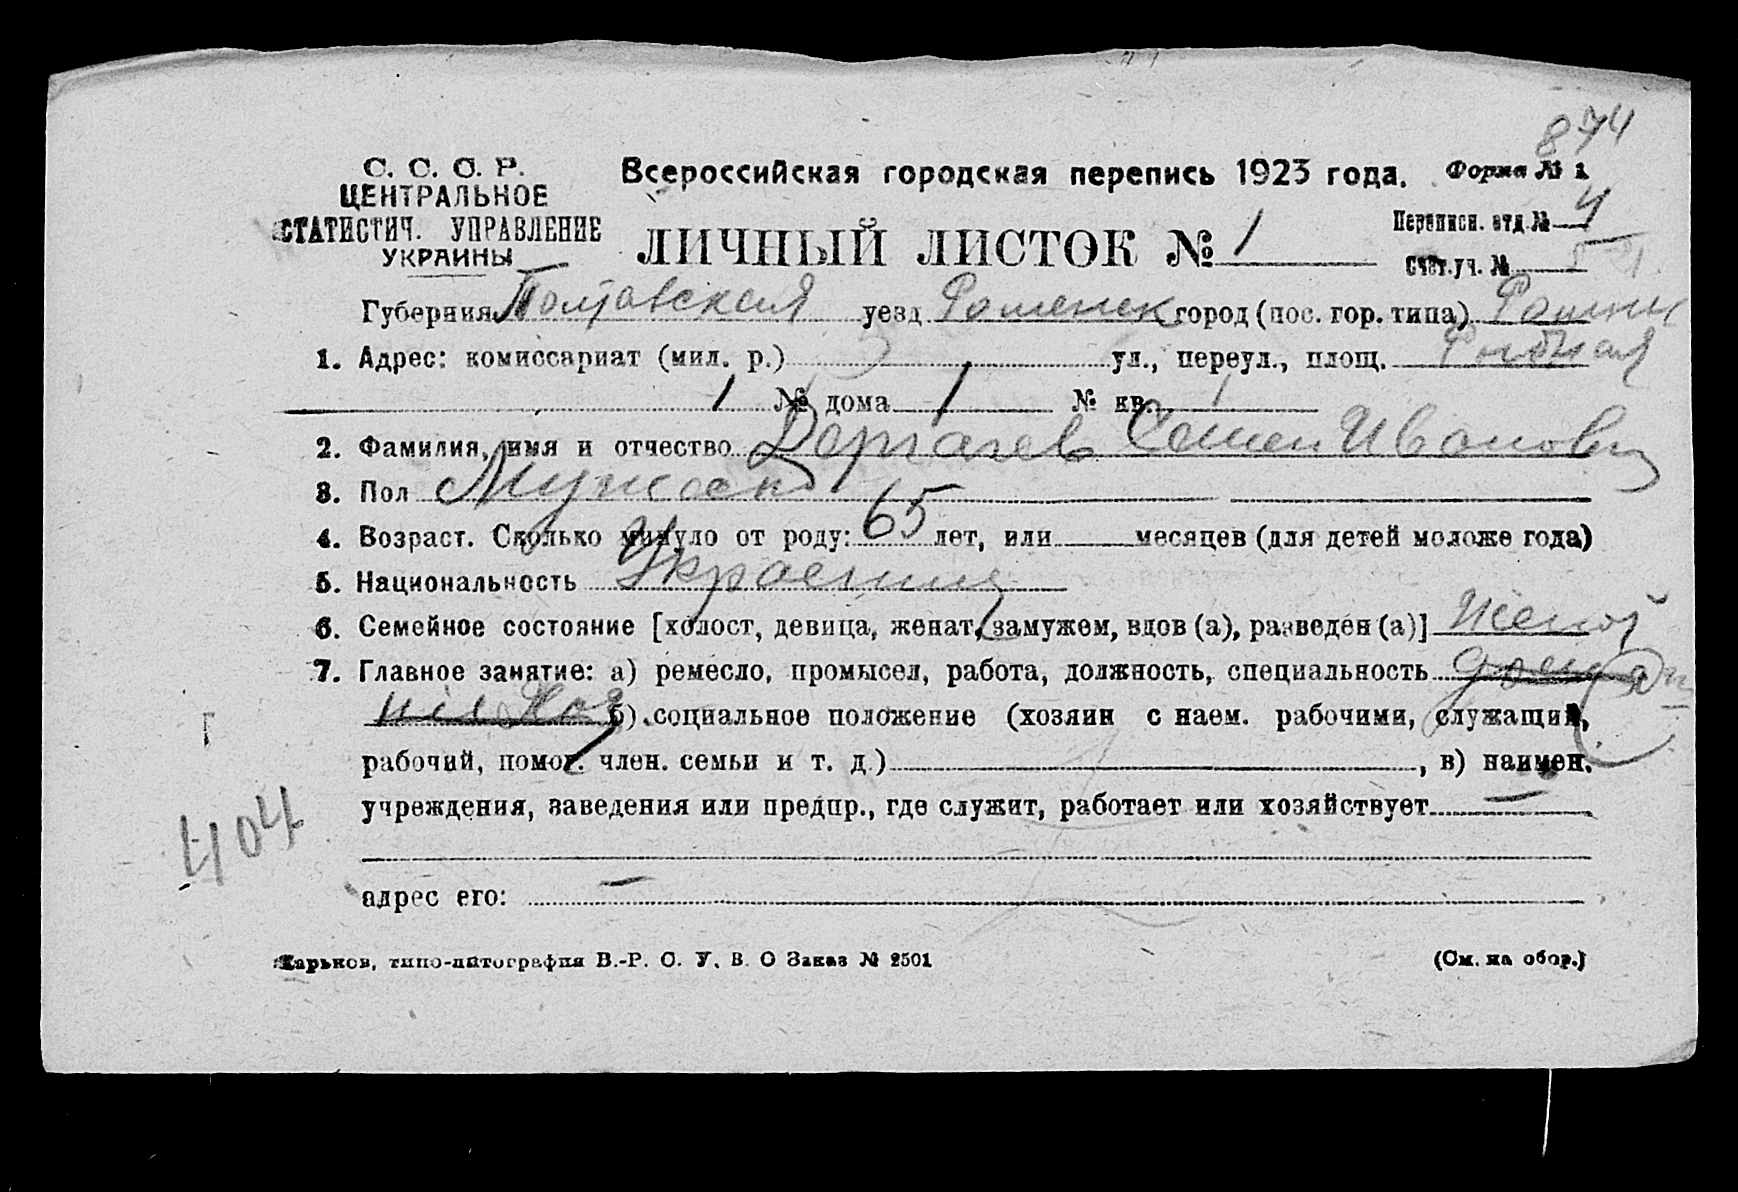 874
С. С. С. Р.
ЦЕНТРАЛЬНОЕ
СТАТИСТИЧ. УПРАВЛЕНИЕ
УКРАИНЫ
Всероссийская городская перепись 1923 года. Форма № 1
ЛИЧНЫЙ ЛИСТОК № 1
Переписн. отд. № 4
Счет. уч. №
Губерния Полтавская уезд Роменск город (пос. гор. типа) Ромны
1. Адрес: комиссариат (мил. р.) ул., переул., площ.
1 № дома 1 № кв. 1
2. Фамилия, имя и отчество Дергачев Семен Иванович
3. Пол Мужской
4. Возраст. Сколько минуло от роду: 65 лет, или месяцев (для детей моложе года)
5. Национальность Украинец
6. Семейное состояние [холост, девица, женат, замужем, вдов (а), разведен (а)]
7. Главное занятие: а) ремесло, промысел, работа, должность, специальность
б) социальное положение (хозяин с наем. рабочими, служащий,
рабочий, помог. член. семьи и т. д.), в) наимен.
учреждения, заведения или предпр., где служит, работает или хозяйствует —
адрес его: —
404
Харьков, типо-литография В.-Р. С. У. В. О Заказ № 2501 (См. на обор.)